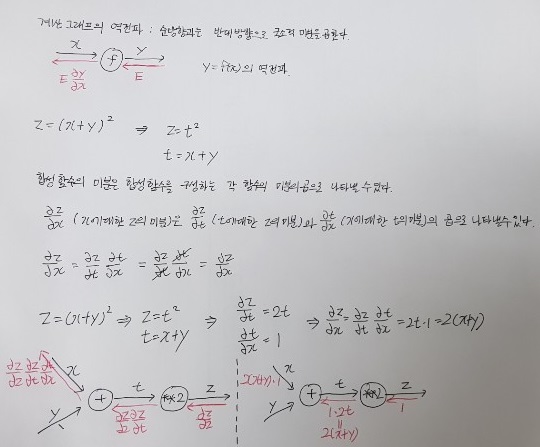 계산 그래프의 역전파 : 순방향과는 반대 방향으로 국소적 미분을 곱한다.
x f y
E ∂y/∂x E
y = f(x)의 역전파.
z = (x+y)² ⇒ z = t²
t = x+y
합성함수의 미분은 합성함수를 구성하는 각 함수의 미분의 곱으로 나타낼 수 있다.
∂z/∂x (x에 대한 z의 미분)은 ∂z/∂t (t에 대한 z의 미분)과 ∂t/∂x (x에 대한 t의 미분)의 곱으로 나타낼 수 있다.
∂z/∂x = ∂z/∂t ∂t/∂x = ∂z/∂t ∂t/∂x = ∂z/∂x
z = (x+y)² ⇒ z = t² ⇒ ∂z/∂t = 2t ⇒ ∂z/∂x = ∂z/∂t ∂t/∂x = 2t·1 = 2(x+y)
t = x+y ∂t/∂x = 1
∂z/∂z ∂z/∂t ∂t/∂x x
y + t **2 z
∂z/∂z ∂z/∂t ∂z/∂z
2(x+y)·1 x
y + t **2 z
1·2t 1
=
2(x+y)